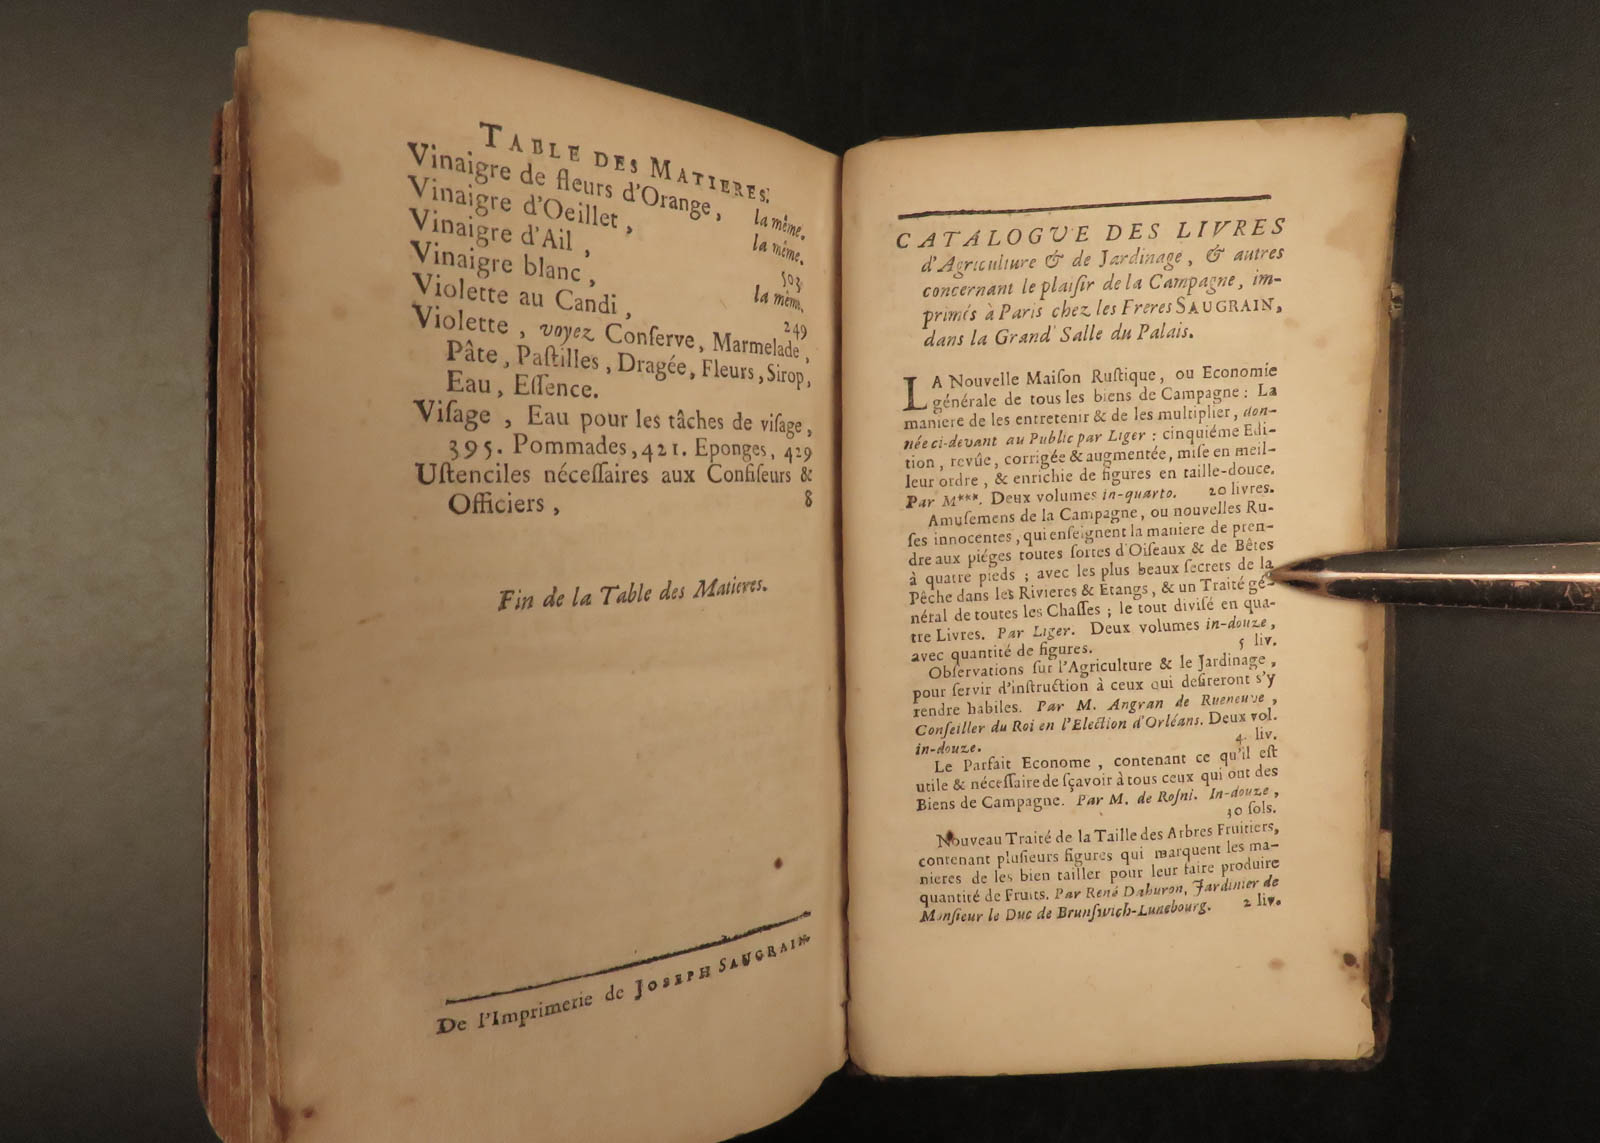 TABLE DES MATIERES.
Vinaigre de fleurs d'Orange, la même.
Vinaigre d'Oeillet, la même.
Vinaigre d'Ail, 503
Vinaigre blanc, la même.
Violette au Candi, 249
Violette, voyez Conſerve, Marmelade,
Pâte, Paſtilles, Dragée, Fleurs, Sirop,
Eau, Eſſence.
Viſage, Eau pour les tâches de viſage,
395. Pommades, 421. Eponges, 429
Uſtenciles néceſſaires aux Confiſeurs &
Officiers, 8
Fin de la Table des Matieres.
De l'Imprimerie de JOSEPH SAUGRAIN.
CATALOGUE DES LIVRES
d'Agriculture & de Jardinage, & autres
concernant le plaiſir de la Campagne, im-
primés à Paris chez les Freres SAUGRAIN,
dans la Grand' Salle du Palais.
LA Nouvelle Maiſon Ruſtique, ou Economie
générale de tous les biens de Campagne: La
maniere de les entretenir & de les multiplier, don-
née ci-devant au Public par Liger: cinquiéme Edi-
tion, revûe, corrigée & augmentée, miſe en meil-
leur ordre, & enrichie de figures en taille-douce.
Par M***. Deux volumes in-quarto. 20 livres.
Amuſemens de la Campagne, ou nouvelles Ru-
ſes innocentes, qui enſeignent la maniere de pren-
dre aux piéges toutes ſortes d'Oiſeaux & de Bêtes
à quatre pieds; avec les plus beaux ſecrets de la
Pêche dans les Rivieres & Etangs, & un Traité gé-
néral de toutes les Chaſſes; le tout diviſé en qua-
tre Livres. Par Liger. Deux volumes in-douze,
avec quantité de figures. 5 liv.
Obſervations ſur l'Agriculture & le Jardinage,
pour ſervir d'inſtruction à ceux qui deſireront s'y
rendre habiles. Par M. Angran de Rueneuve,
Conſeiller du Roi en l'Election d'Orléans. Deux vol.
in-douze. 4 liv.
Le Parfait Econome, contenant ce qu'il eſt
utile & néceſſaire de ſçavoir à tous ceux qui ont des
Biens de Campagne. Par M. de Roſni. In-douze,
30 ſols.
Nouveau Traité de la Taille des Arbres Fruitiers,
contenant pluſieurs figures qui marquent les ma-
nieres de les bien tailler pour leur faire produire
quantité de Fruits. Par René Dahuron, Jardinier de
Monſieur le Duc de Brunſwich-Lunebourg. 2 liv.